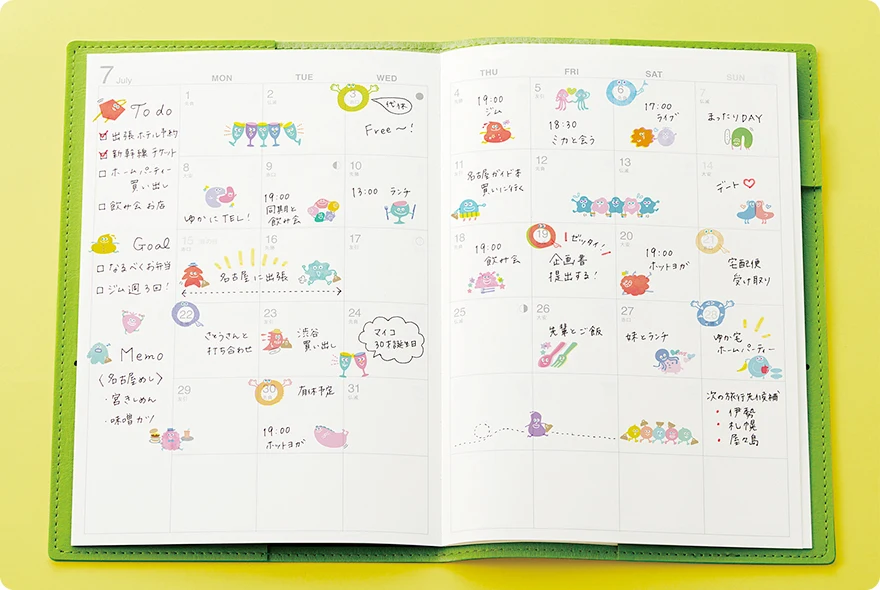 7 July
MON TUE WED
THU FRI SAT SUN
To do
出張ホテル予約
新幹線チケット
ホームパーティー
買い出し
飲み会 お店
Goal
なるべくお弁当
ジム週3回!
Memo
〈名古屋めし〉
・宮きしめん
・味噌カツ
1
2
3
代休
Free〜!
4
19:00
ジム
5
18:30
ミカと会う
6
17:00
ライブ
7
まったりDAY
8
ゆかにTEL!
9
19:00
同期と
飲み会
10
13:00 ランチ
11
名古屋ガイド本
買いに行く
12
13
14
デート
15
16
名古屋に出張
17
18
19:00
飲み会
19
ゼッタイ!
企画書
提出する!
20
19:00
ホットヨガ
21
宅配便
受け取り
22
さとうさんと
打ち合わせ
23
渋谷
買い出し
24
マイコ
30才誕生日
25
26
先輩とご飯
27
妹とランチ
28
ゆか宅
ホームパーティー
29
30
有休予定
19:00
ホットヨガ
31
次の旅行先候補
・伊勢
・札幌
・屋久島